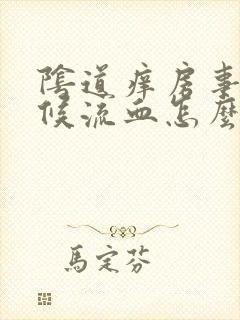 陰道痒房事
候流血怎麼
馬定芬